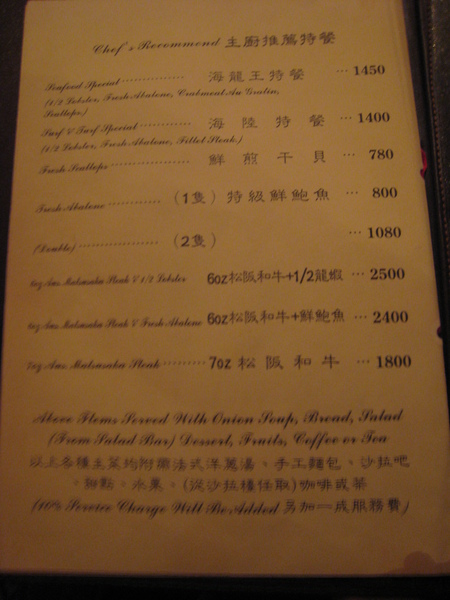 Chef's Recommend 主廚推薦特餐
Seafood Special ............... 海龍王特餐 ... 1450
(1/2 Lobster, Fresh Abalone, Crabmeat Au Gratin,
Scallops)
Surf & Turf Special ............ 海陸特餐 ... 1400
(1/2 Lobster, Fresh Abalone, Fillet Steak)
Fresh Scallops .................. 鮮煎干貝 ... 780
Fresh Abalone ............ (1隻) 特級鮮鮑魚 ... 800
(Double) .................. (2隻) ... 1080
6oz Aus Matsusaka Steak & 1/2 Lobster 6oz松阪和牛+1/2龍蝦 ... 2500
6oz Aus Matsusaka Steak & Fresh Abalone 6oz松阪和牛+鮮鮑魚 ... 2400
7oz Aus Matsusaka Steak ......... 7oz松阪和牛 ... 1800
Above Items Served With Onion Soup, Bread, Salad
(From Salad Bar) Dessert, Fruits, Coffee or Tea
以上各種主菜均附贈法式洋蔥湯、手工麵包、沙拉吧
、甜點、水果、(從沙拉檯任取)咖啡或茶
(10% Service Charge Will Be Added 另加一成服務費)